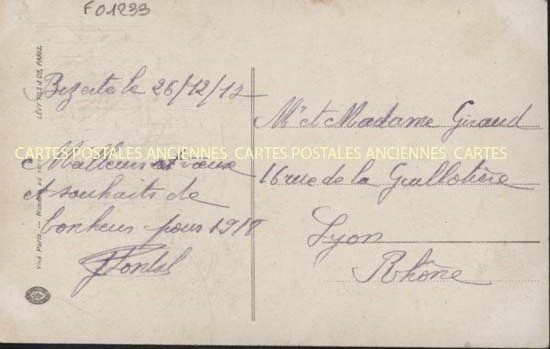 F01233
LÉVY FILS & CIE, PARIS
Visé Paris. — Numéro au
Bizerte le 26/12/17
Meilleurs vœux
et souhaits de
bonheur pour 1918
Mr et Madame Giraud
16 rue de la Guillotière
Lyon
Rhône
CARTES POSTALES ANCIENNES CARTES POSTALES ANCIENNES CARTES